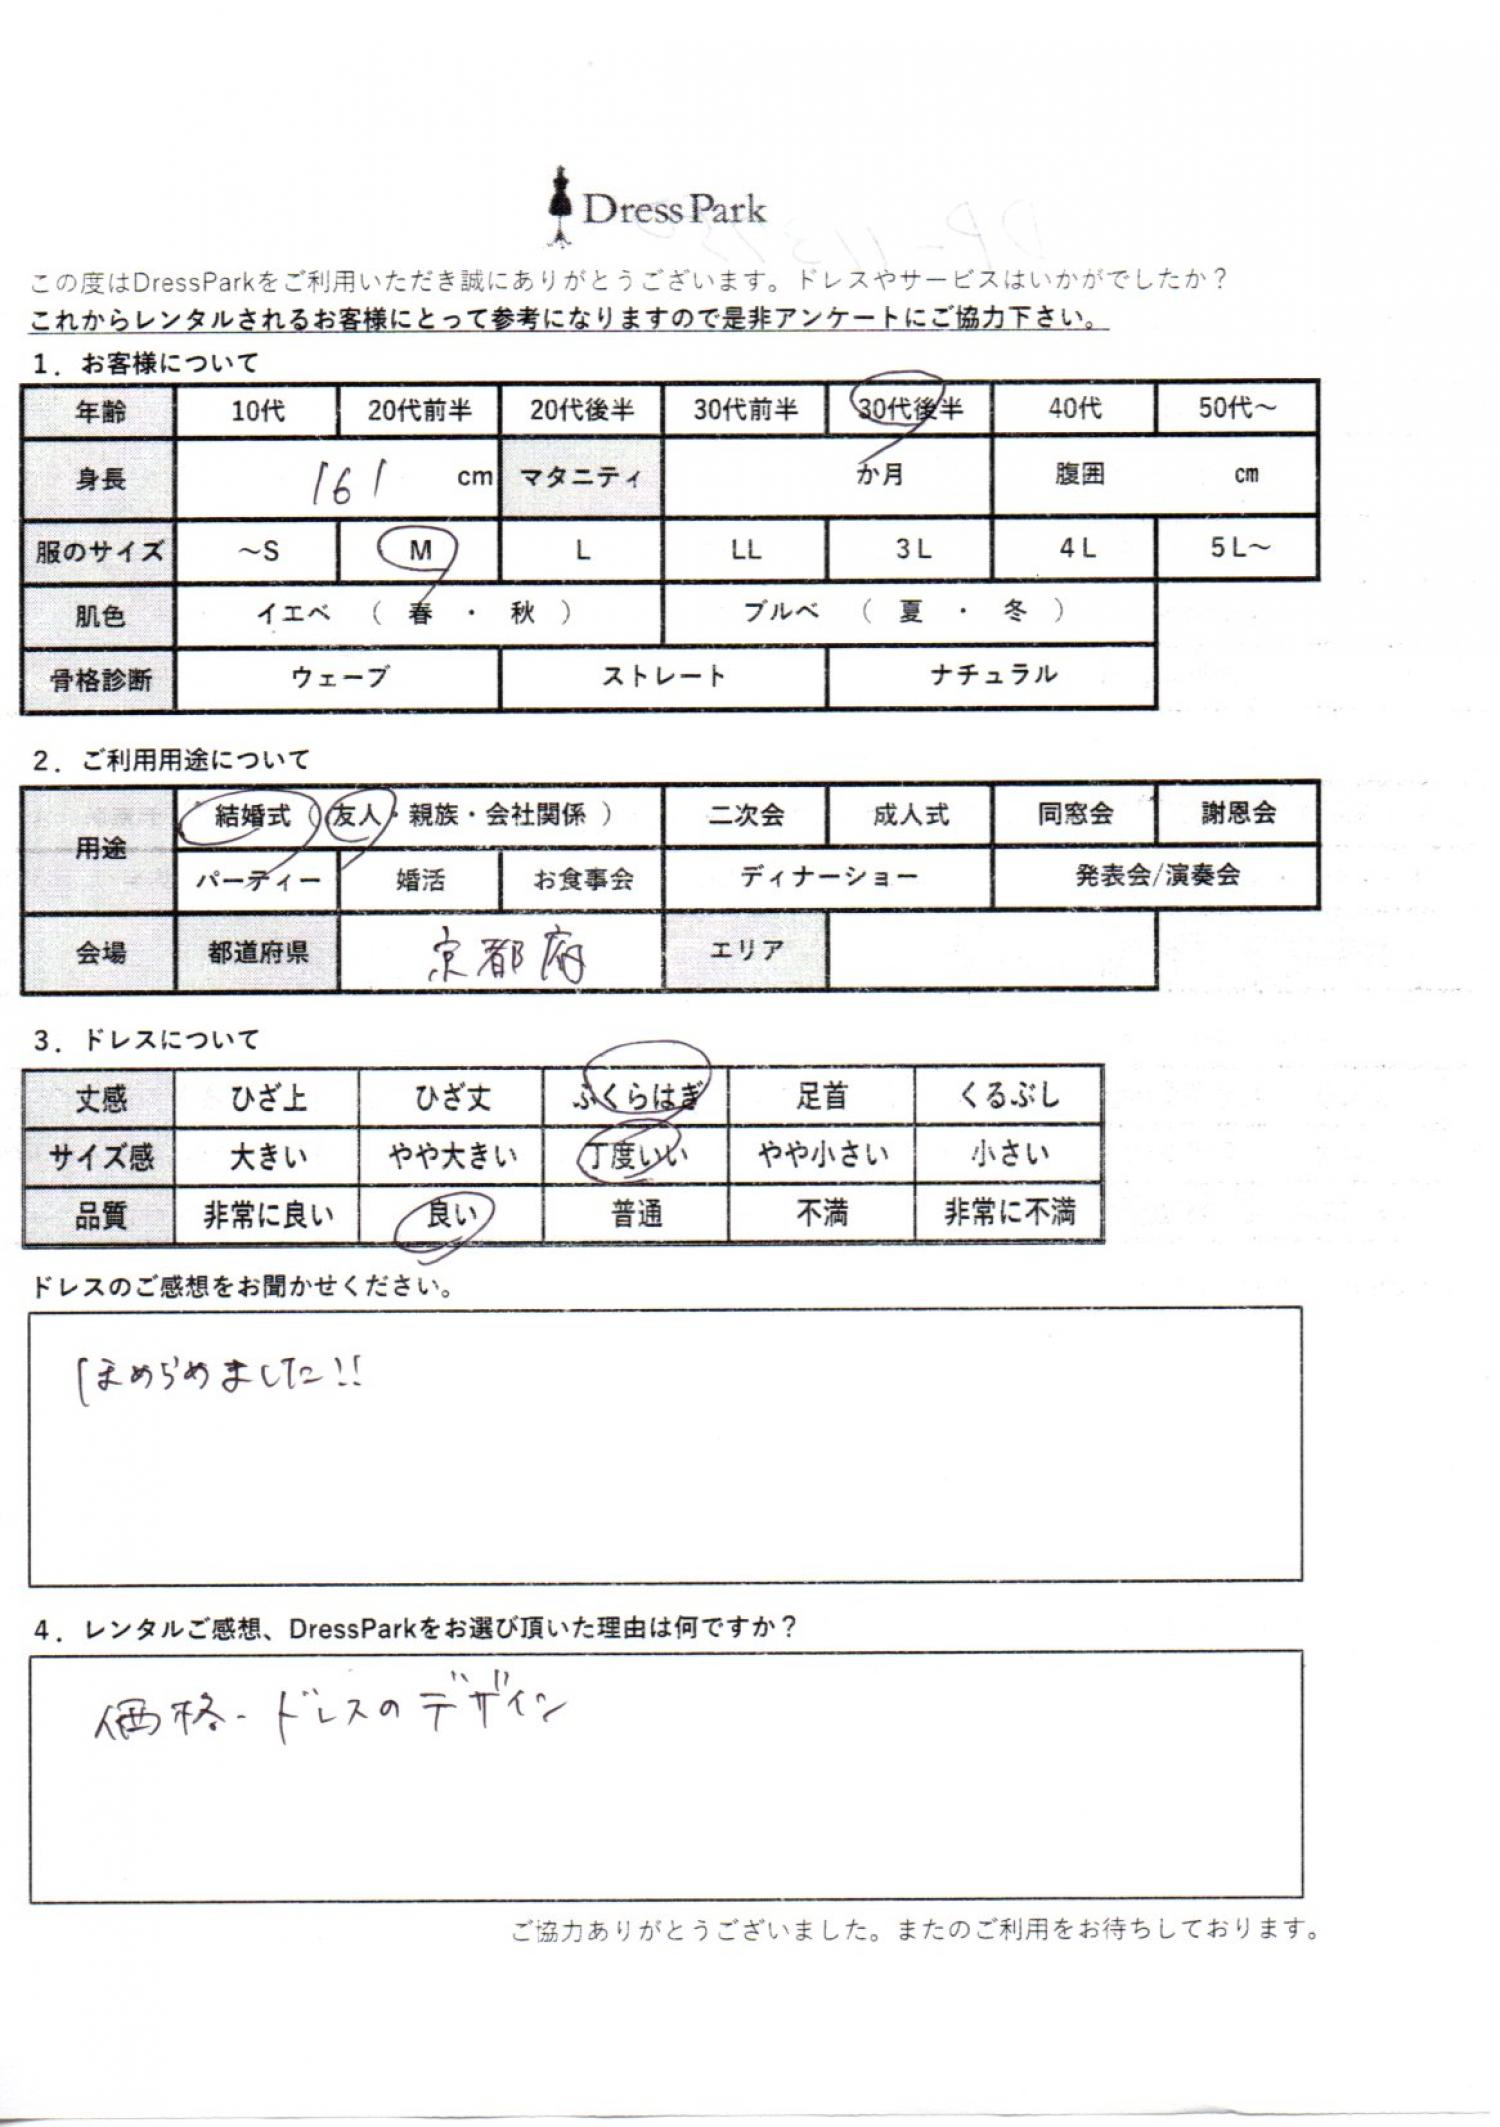 DressPark
この度はDressParkをご利用いただき誠にありがとうございます。ドレスやサービスはいかがでしたか？
これからレンタルされるお客様にとって参考になりますので是非アンケートにご協力下さい。
1．お客様について
年齢 10代 20代前半 20代後半 30代前半 30代後半 40代 50代～
身長 161 cm マタニティ か月 腹囲 cm
服のサイズ ～S M L LL 3L 4L 5L～
肌色 イエベ （ 春 ・ 秋 ） ブルベ （ 夏 ・ 冬 ）
骨格診断 ウェーブ ストレート ナチュラル
2．ご利用用途について
用途 結婚式（ 友人・親族・会社関係 ） 二次会 成人式 同窓会 謝恩会
パーティー 婚活 お食事会 ディナーショー 発表会/演奏会
会場 都道府県 京都府 エリア
3．ドレスについて
丈感 ひざ上 ひざ丈 ふくらはぎ 足首 くるぶし
サイズ感 大きい やや大きい 丁度いい やや小さい 小さい
品質 非常に良い 良い 普通 不満 非常に不満
ドレスのご感想をお聞かせください。
ほめらめました!!
4．レンタルご感想、DressParkをお選び頂いた理由は何ですか？
価格、ドレスのデザイン
ご協力ありがとうございました。またのご利用をお待ちしております。